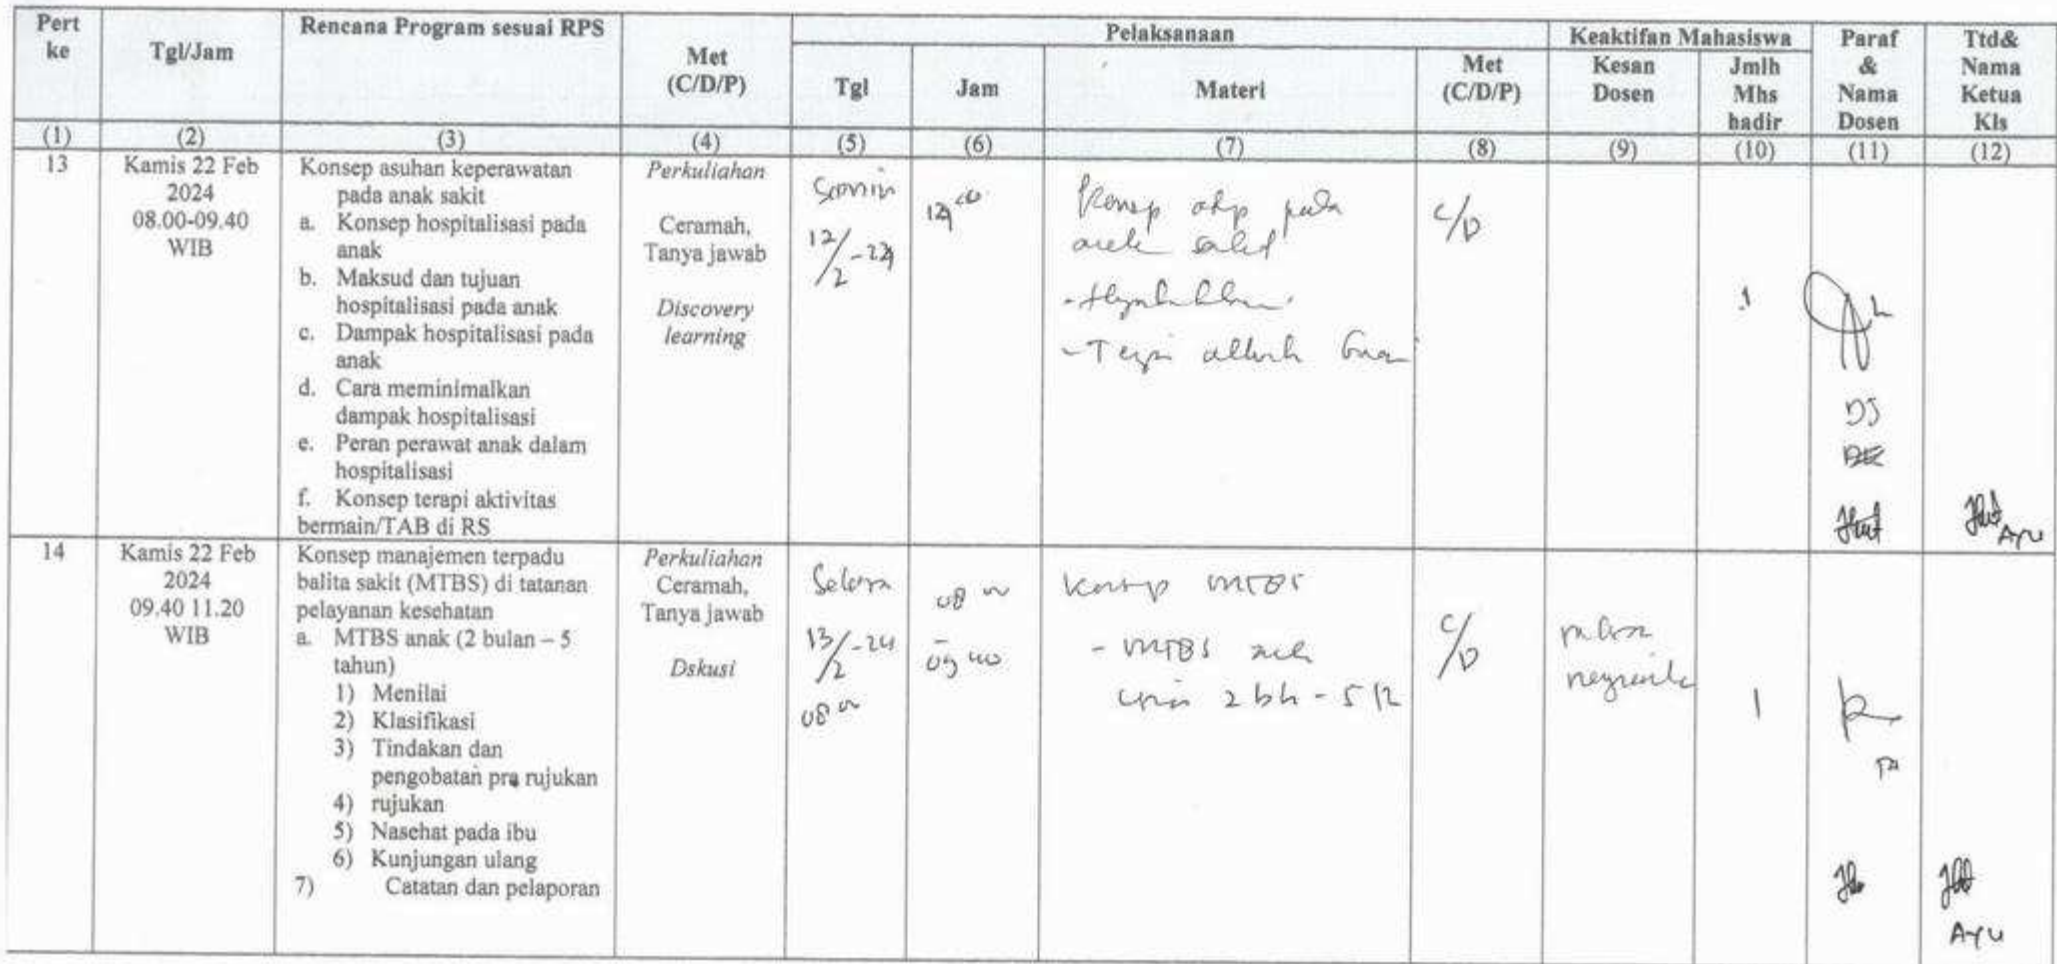 Pert ke
Tgl/Jam
Rencana Program sesuai RPS
Met (C/D/P)
Pelaksanaan
Tgl
Jam
Materi
Met (C/D/P)
Keaktifan Mahasiswa
Kesan Dosen
Jmlh Mhs hadir
Paraf & Nama Dosen
Ttd& Nama Ketua Kls
(1) (2) (3) (4) (5) (6) (7) (8) (9) (10) (11) (12)
13
Kamis 22 Feb
2024
08.00-09.40
WIB
Konsep asuhan keperawatan
pada anak sakit
a. Konsep hospitalisasi pada
anak
b. Maksud dan tujuan
hospitalisasi pada anak
c. Dampak hospitalisasi pada
anak
d. Cara meminimalkan
dampak hospitalisasi
e. Peran perawat anak dalam
hospitalisasi
f. Konsep terapi aktivitas
bermain/TAB di RS
Perkuliahan
Ceramah,
Tanya jawab
Discovery
learning
12/2-24
pada
C/D
1
DJ
Ayu
14
Kamis 22 Feb
2024
09.40 11.20
WIB
Konsep manajemen terpadu
balita sakit (MTBS) di tatanan
pelayanan kesehatan
a. MTBS anak (2 bulan – 5
tahun)
1) Menilai
2) Klasifikasi
3) Tindakan dan
pengobatan pra rujukan
4) rujukan
5) Nasehat pada ibu
6) Kunjungan ulang
7) Catatan dan pelaporan
Perkuliahan
Ceramah,
Tanya jawab
Dskusi
13/2-24
08 00
08 00
-
09 40
MTBS
- MTBS
C/D
1
Ayu